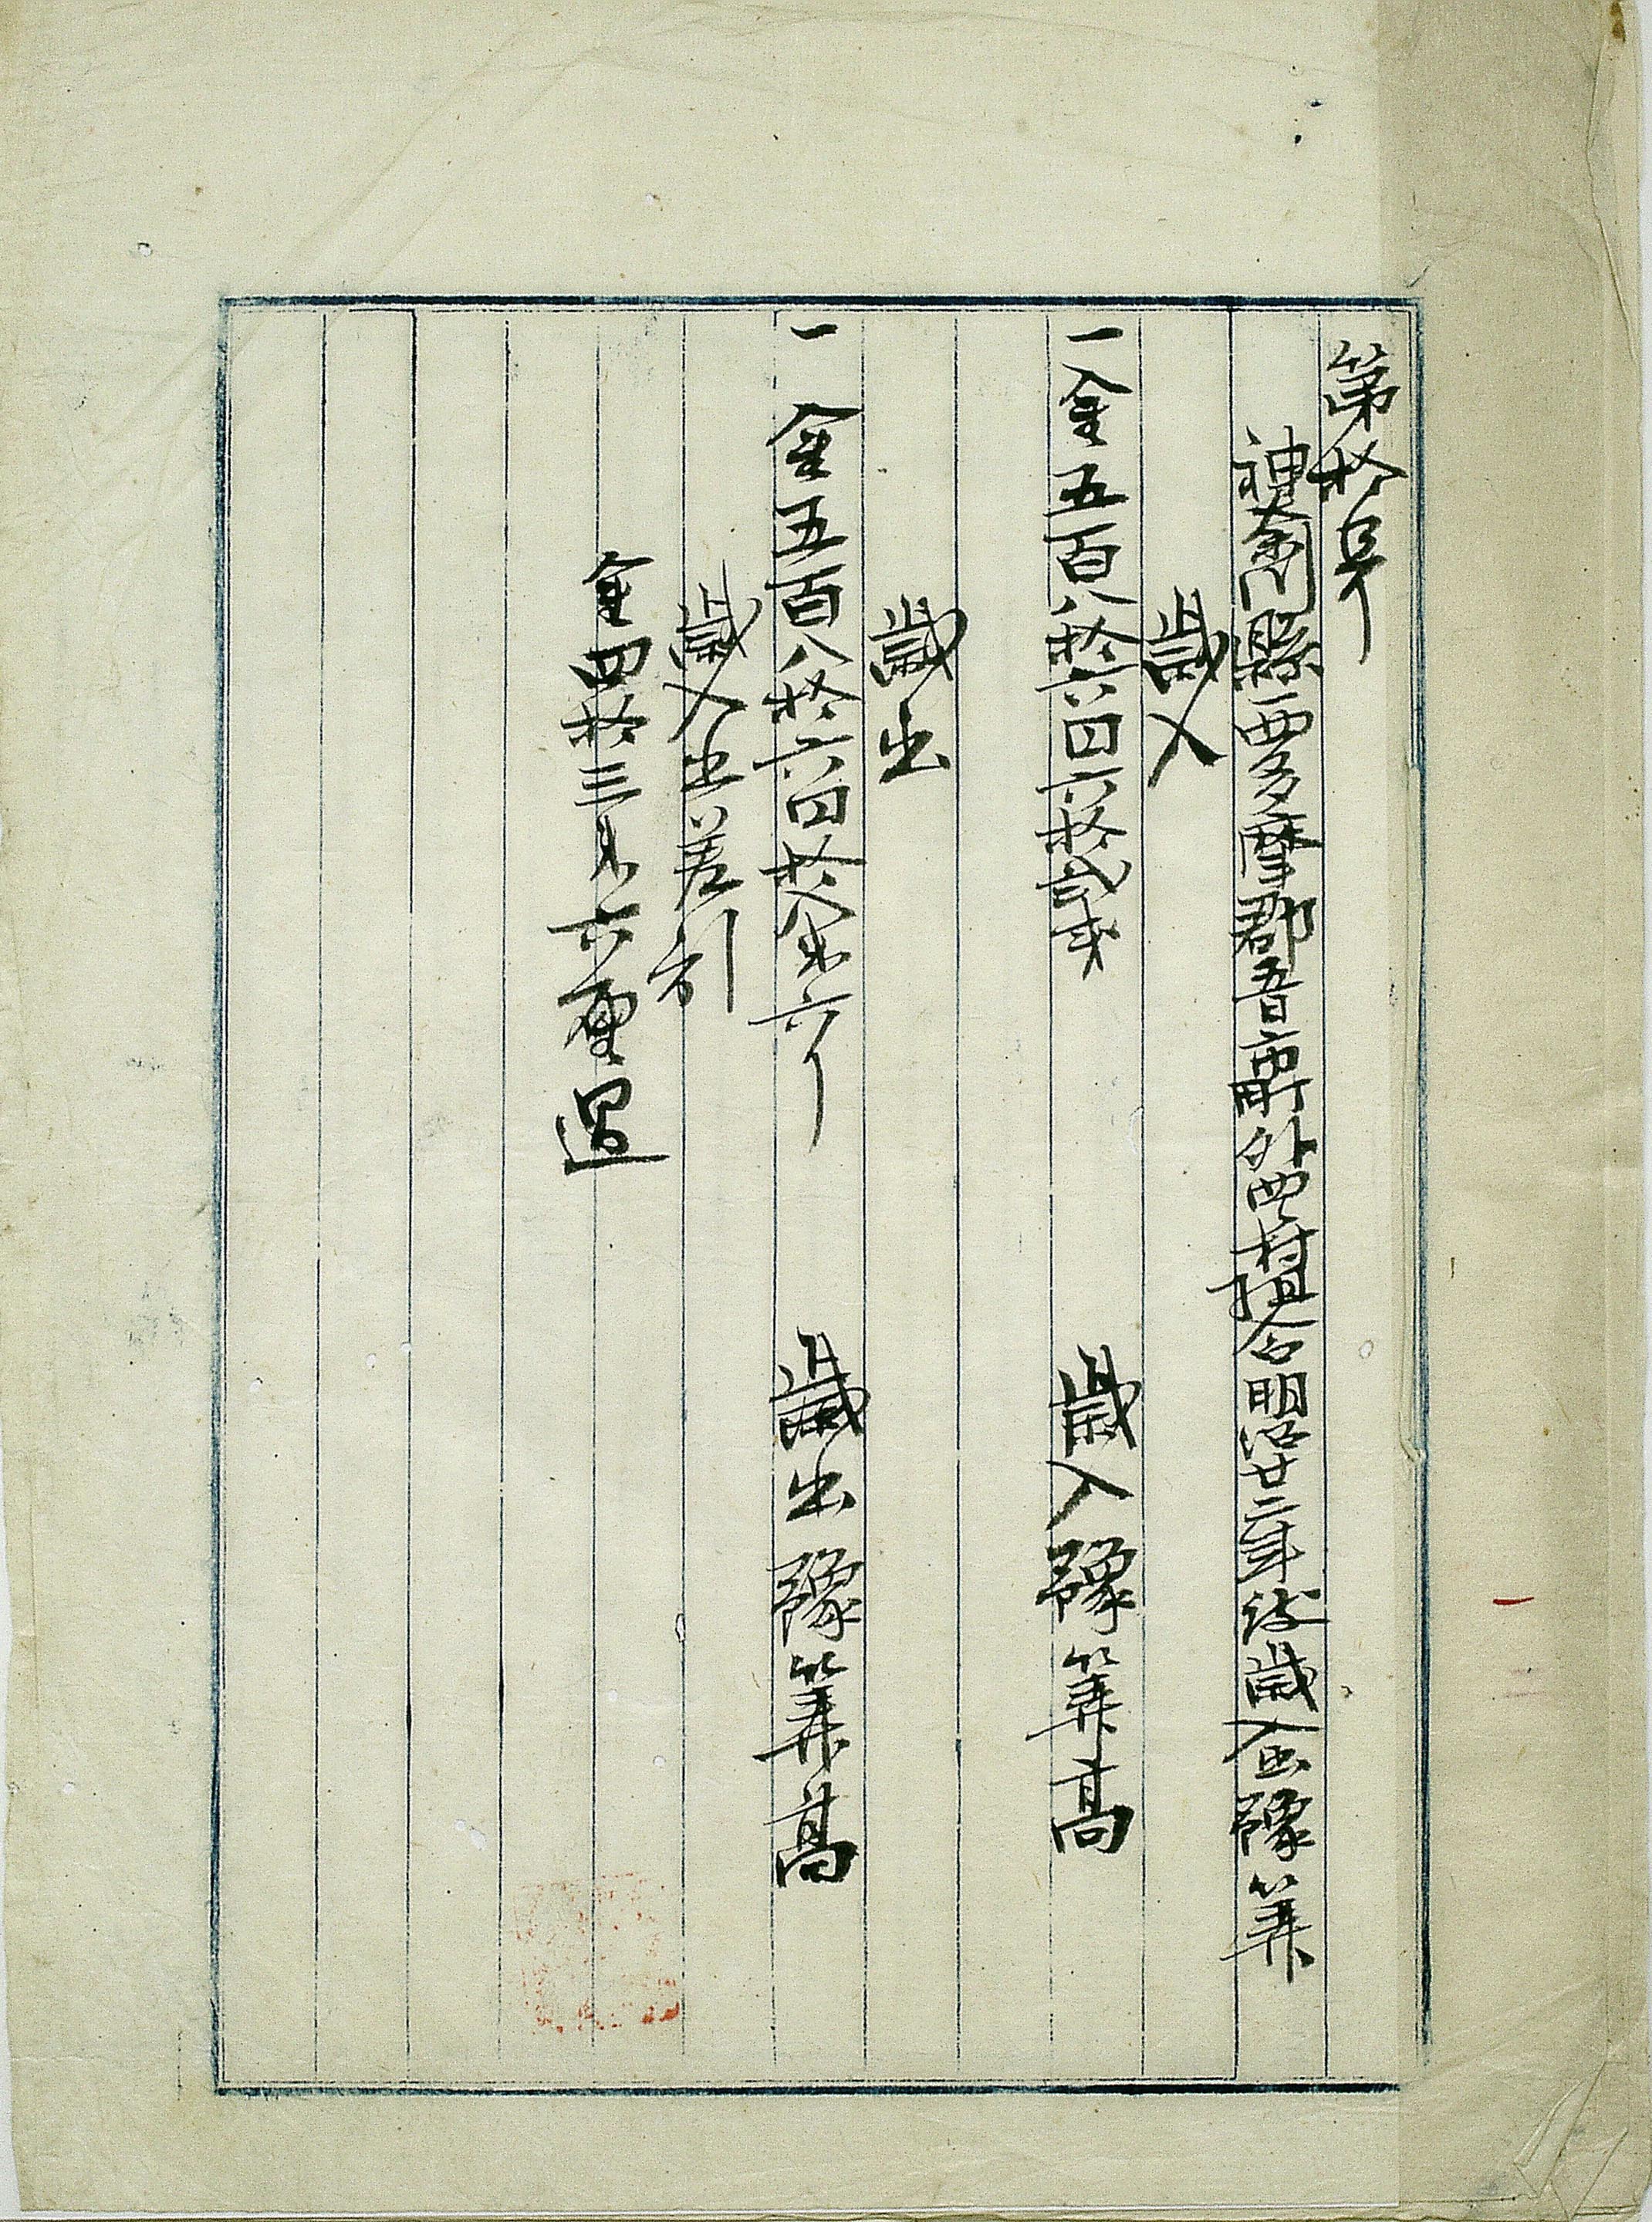 第拾号
神奈川縣西多摩郡五日市町外四ヶ村組合明治廿二年度歳入出豫算
歳入
一金五百八拾六円六拾弐銭 歳入豫算高
歳出
一金五百八拾六円拾八銭六厘 歳出豫算高
歳入出差引
金四拾三銭六厘過